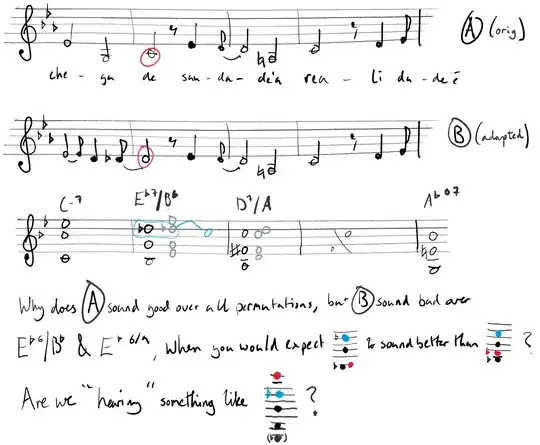 A (orig)
che - ga de sau - da - de'a rea - li da - de é
B (adapted)
C-7 E♭7/B♭ D7/A A♭o7
Why does A sound good over all permutations, but B sound bad over
E♭6/B♭ & E♭6/9, when you would expect to sound better than ?
Are we "hearing" something like ?